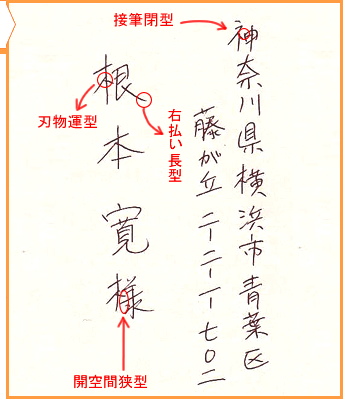 接筆閉型
神奈川県横浜市青葉区
藤が丘二ー二ー一ー七〇二
右払い長型
根本寛様
刃物運型
開空間狭型